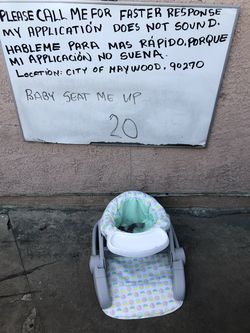 PLEASE CALL ME FOR FASTER RESPONSE
MY APPLICATION DOES NOT SOUND.
HABLEME PARA MAS RÁPIDO, PORQUE
MI APPLICACIÓN NO SUENA.
LOCATION: CITY OF MAYWOOD, 90270
BABY SEAT ME UP
20